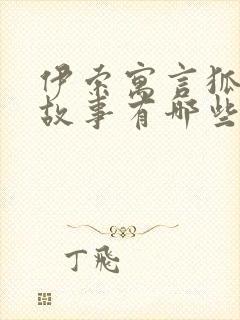 伊索寓言狐
故事有哪些
丁飛